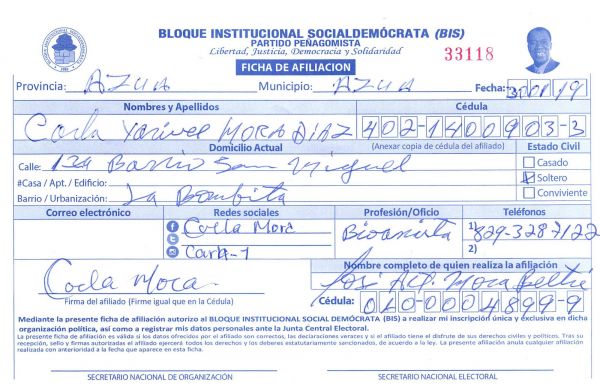 BLOQUE INSTITUCIONAL SOCIALDEMÓCRATA (BIS)
PARTIDO PEÑAGOMISTA
Libertad, Justicia, Democracia y Solidaridad
33118
FICHA DE AFILIACION
Provincia: AZUA Municipio: AZUA Fecha: 30/01/19
Nombres y Apellidos Cédula
Carla MORA DIAZ 402-1400903-3
Domicilio Actual (Anexar copia de cédula del afiliado) Estado Civil
Calle: 124 Barrio San Miguel Casado
#Casa / Apt. / Edificio: Soltero
Barrio / Urbanización: La Bombita Conviviente
Correo electrónico Redes sociales Profesión/Oficio Teléfonos
Carla Mora Bioanista 1) 829-328-7122
Carla-1 2)
Nombre completo de quien realiza la afiliación
Carla Mora Mora Beltré
Firma del afiliado (Firme igual que en la Cédula) Cédula: 010-0004899-9
Mediante la presente ficha de afiliación autorizo al BLOQUE INSTITUCIONAL SOCIAL DEMÓCRATA (BIS) a realizar mi inscripción única y exclusiva en dicha
organización política, así como a registrar mis datos personales ante la Junta Central Electoral.
La presente ficha de afiliación es válida si los datos ofrecidos por el afiliado son correctos, las declaraciones veraces y si el afiliado tiene el disfrute de sus derechos civiles y políticos. Tras su
recepción, sello y firmas autorizadas el afiliado ejercerá todos los derechos y los deberes estatutariamente sancionados, de acuerdo a la ley. La presente afiliación anula cualquier afiliación
realizada con anterioridad a la fecha que aparece en esta ficha.
SECRETARIO NACIONAL DE ORGANIZACIÓN SECRETARIO NACIONAL ELECTORAL